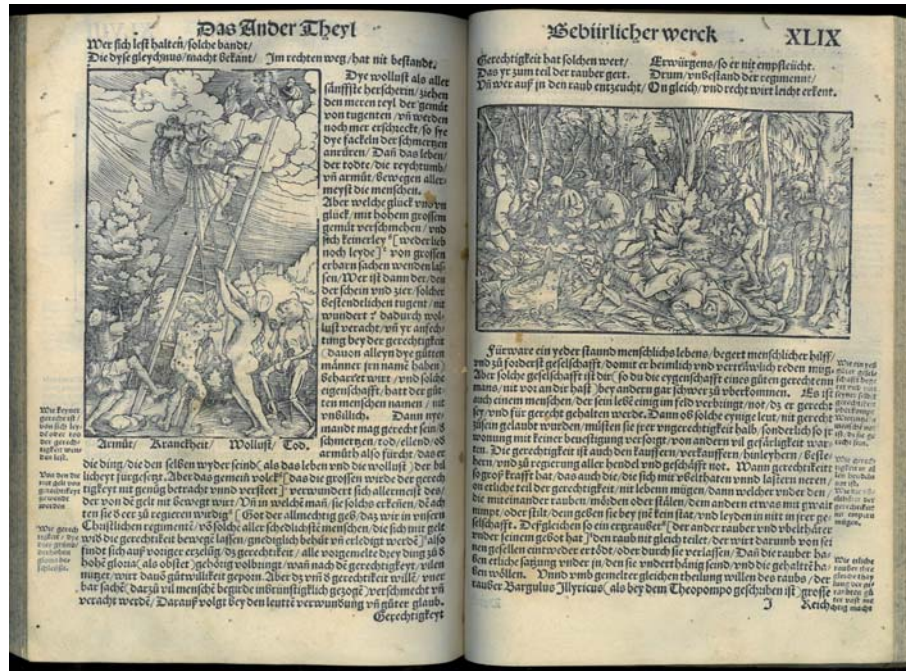 Das Ander Theyl
Wer sich lest halten/solche bandt/
Die dyse gleychnus/macht bekant/ Im rechten weg/hat nit bestandt.
Dye wollust als aller
sänffste herscherin/ziehen
den meren teyl der gemüt
von tugenten/vñ werden
noch mer erschreckt/so sye
dye fackeln der schmertzen
anrüren/Dañ das leben/
der todte/die reychtumb/
vñ armůt/bewegen aller-
meyst die menschen.
Aber welche glück vnd vn
glück/mit hohem grossem
gemüt verschmehen/vnd
sich keinerley [weder lieb
noch leyde] von grossen
erbarn sachen wenden las
sen/Wer ist dann der/den
der schein vnd zier/solcher
bestendtlichen tugent/nit
wundert? dadurch wol-
lust veracht/vñ yr anfech-
tung bey der gerechtigkeit
(dauon alleyn dye gůtten
männer jrn namē haben)
beharret wirt/vnd solche
eigenschafft/hart der gůt-
ten menschen namen/nit
vnbillich. Dann nye-
mandt mag gerecht sein/d̄
schmertzen/tod/ellend/od̄
armůth also fürcht/das er
Armůt/ Kranckheit/ Wollust/ Tod.
die ding/die den selben wyder seind (als das leben vnd die wollust) der bil
licheyt fürgesetzt. Aber das gemein volck [das die grossen wirde der gerech
tigkeyt nit genůg betracht vnnd versteet] verwundert sich allermeist des/
der von dē gelt nit bewegt wurt/Vñ in welchē mañ/sie solchs erkeñen/dē ach
ten sie d̄s eer zů regieren wirdig [Got der allmechtig geb/daz wir in vnserm
Christlichen regimentē/vō solche aller schedlichstē menschen/die sich mit gelt
wid̄ die gerechtikeit bewegē lassen/gnediglich behůt vñ erledigt werdē] also
findt sich auß voriger erzelūg/dz gerechtikeit/alle vorgemelte drey ding zů d̄
hohē gloria (als obstet) gehörig volbringt/wañ nach dē gerechtikeyt/vilen
nutzet/wirt dauō gůtwilligkeit geporn. Aber dz vm̄ d̄ gerechtikeit willē/vner
bar sachē (darzů vil menschē begirde inbrünstiglich gezogē) verschmecht vñ
veracht werdē/Darauß volgt bey den leuttē verwundung vñ gůter glaub.
Gerechtigkeyt
Gebürlicher werck XLIX
Gerechtigkeit hat solchen wert/ Erwürgens/so er nit empfleücht.
Das yr zum teil der rauber gert. Drum/vnbestand der regimennt/
Vñ wer auß in den raub entzeucht/ On gleich/vnd recht wirt leicht erkent.
Fürware ein yeder staunnd menschlichs lebens/begert menschlicher hilff/
vnd zů forderst geselschafft/domit er heimlich vnd verträwlich reden mug.
Aber solche geselschafft ist dir (so du die eygenschafft eines gůten gerechtenn
mans/nit vor an dir hast) bey andern gar schwer zů vberkommen. Es ist
auch einem menschen/der sein lebē einig im feld verbringt/not/dz er gerecht
sey/vnd für gerecht gehalten werde. Dann ob solche eynige leut/nit gerecht
zůsein gelaubt wurden/müsten sie jrer vngerechtigkeit halb/sonderlich so jr
wonung mit keiner beuestigung versorgt/von andern vil gefärligkeit war-
ten. Die gerechtigkeit ist auch den kauffern/verkauffern/hinleyhern/beste-
hern/vnd zů regierung aller hendel vnd geschäfft not. Wann gerechtikeit
so groß krafft hat/das auch die/die sich mit vbelthaten vnnd lastern neren/
on etliche teil der gerechtigkeit/nit lebenn mügen/dann welcher vnder den/
die miteinander rauben/mörden oder stälen/dem andern etwas mit gwalt
nimpt/oder stilt/dem geben sie bey jnē kein stat/vnd leyden in nit in jrer ge-
selschafft. Deßgleichen so ein ertzrauber [der ander rauber vnd vbelthäter
vnder seinem gebot hat] den raub nit gleich teilet/der wirt darumb von sei
nen gesellen eintweder ertödt/oder durch sie verlassen/Dañ die rauber ha-
ben etliche satzung vnder jn/den sie vnderthänig seind/vnd die gehaltē ha-
ben wöllen. Vnnd vmb gemelter gleichen theilung willen des raubs/der
rauber Bargulus Illyricus (als bey dem Theopompo geschriben ist) grosse
J Reich